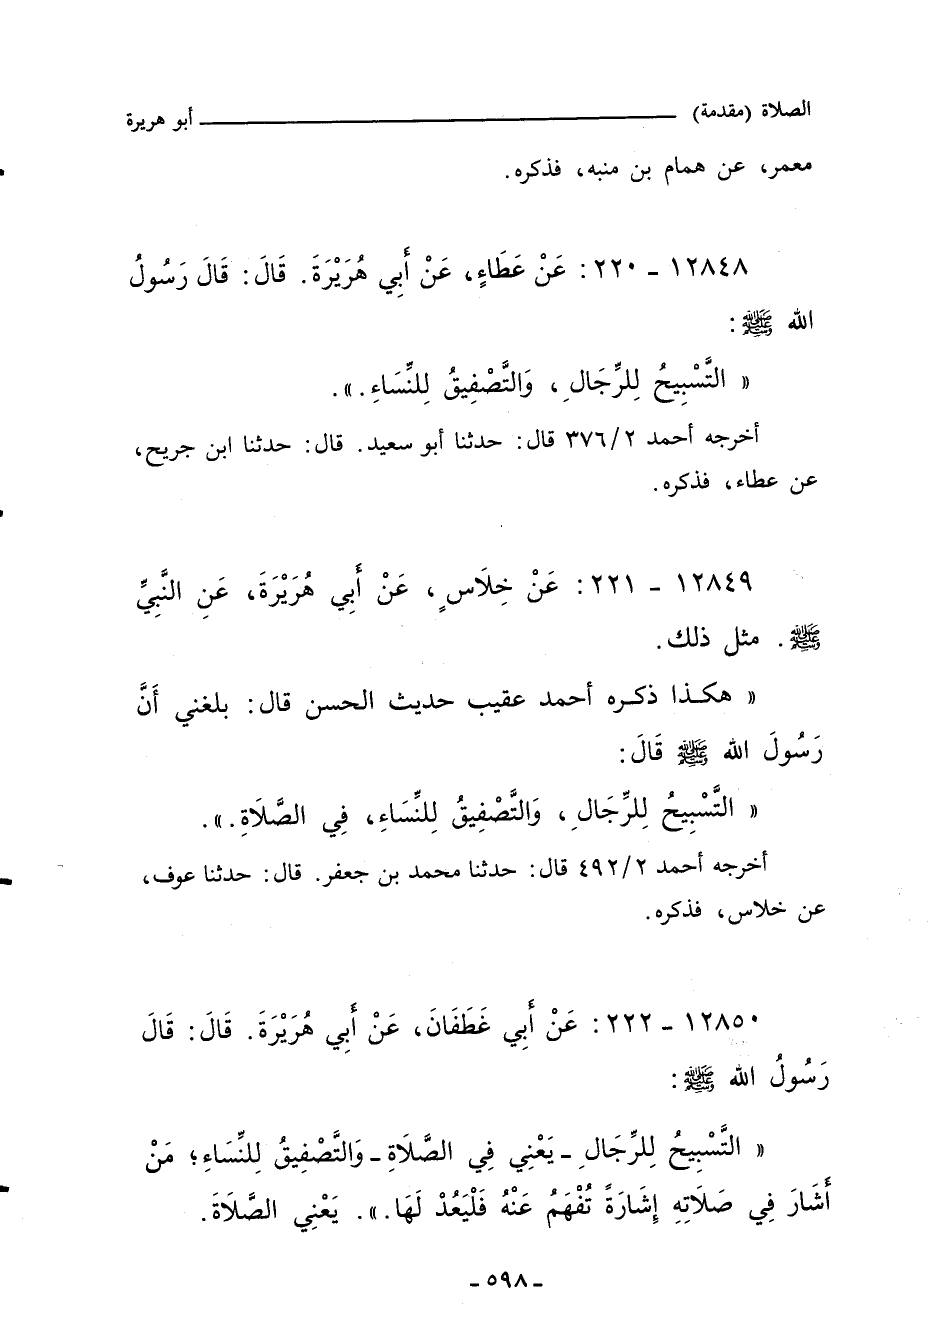 الصلاة (مقدمة) ــــــــــــــــــــ أبو هريرة
معمر، عن همام بن منبه، فذكره.
١٢٨٤٨ - ٢٢٠ : عَنْ عَطَاءٍ، عَنْ أَبِي هُرَيْرَةَ. قَالَ: قَالَ رَسُولُ
الله ﷺ:
« التَّسْبِيحُ لِلرِّجَالِ، وَالتَّصْفِيقُ لِلنِّسَاءِ.».
أخرجه أحمد ٣٧٦/٢ قال: حدثنا أبو سعيد. قال: حدثنا ابن جريح،
عن عطاء، فذكره.
١٢٨٤٩ - ٢٢١ : عَنْ خِلَاسٍ، عَنْ أَبِي هُرَيْرَةَ، عَنِ النَّبِيِّ
ﷺ. مثل ذلك.
« هكذا ذكره أحمد عقيب حديث الحسن قال: بلغني أَنَّ
رَسُولَ الله ﷺ قَالَ:
« التَّسْبِيحُ لِلرِّجَالِ، وَالتَّصْفِيقُ لِلنِّسَاءِ، فِي الصَّلَاةِ.».
أخرجه أحمد ٤٩٢/٢ قال: حدثنا محمد بن جعفر. قال: حدثنا عوف،
عن خلاس، فذكره.
١٢٨٥٠ - ٢٢٢ : عَنْ أَبِي غَطَفَانَ، عَنْ أَبِي هُرَيْرَةَ. قَالَ: قَالَ
رَسُولُ الله ﷺ:
« التَّسْبِيحُ لِلرِّجَالِ - يَعْنِي فِي الصَّلَاةِ - وَالتَّصْفِيقُ لِلنِّسَاءِ؛ مَنْ
أَشَارَ فِي صَلَاتِهِ إِشَارَةً تُفْهَمُ عَنْهُ فَلْيَعُدْ لَهَا.». يَعْنِي الصَّلَاةَ.
- ٥٩٨ -